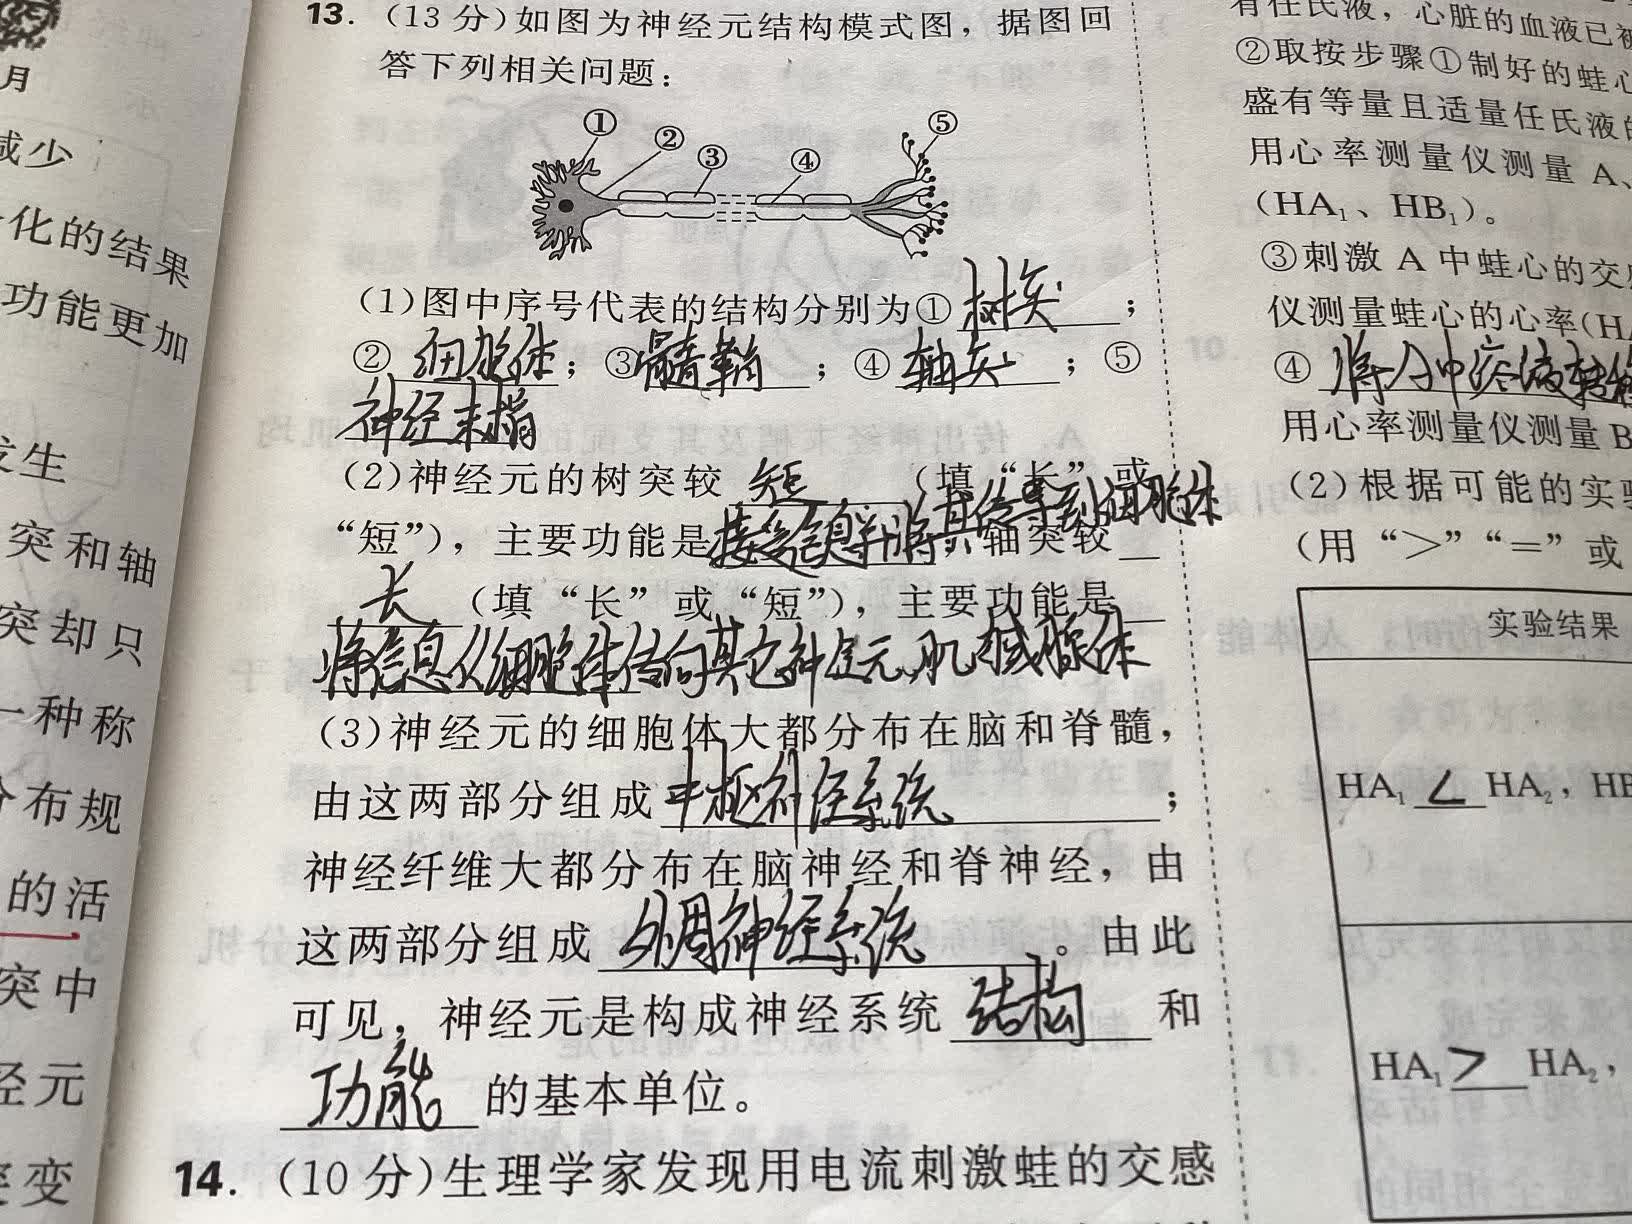 月
减少
化的结果
功能更加
发生
突和轴
突却只
一种称
分布规
的活
突中
经元
突变
13. (13分)如图为神经元结构模式图，据图回
答下列相关问题：
① ② ③ ④ ⑤
(1)图中序号代表的结构分别为①树突；
②细胞体；③髓鞘；④轴突；⑤
神经末梢
(2)神经元的树突较短(填“长”或
“短”)，主要功能是接受信息并将其传导到细胞体；轴突较
长(填“长”或“短”)，主要功能是
将信息从细胞体传向其它神经元、肌肉或腺体
(3)神经元的细胞体大都分布在脑和脊髓，
由这两部分组成中枢神经系统；
神经纤维大都分布在脑神经和脊神经，由
这两部分组成外周神经系统。由此
可见，神经元是构成神经系统结构和
功能的基本单位。
14. (10分)生理学家发现用电流刺激蛙的交感
有任氏液，心脏的血液已被
②取按步骤①制好的蛙心
盛有等量且适量任氏液的
用心率测量仪测量 A、
(HA₁、HB₁)。
③刺激 A 中蛙心的交感
仪测量蛙心的心率(HA
④将A中
用心率测量仪测量 B
(2)根据可能的实验
(用“>”“=”或
实验结果
HA₁<HA₂，HB
HA₁>HA₂，